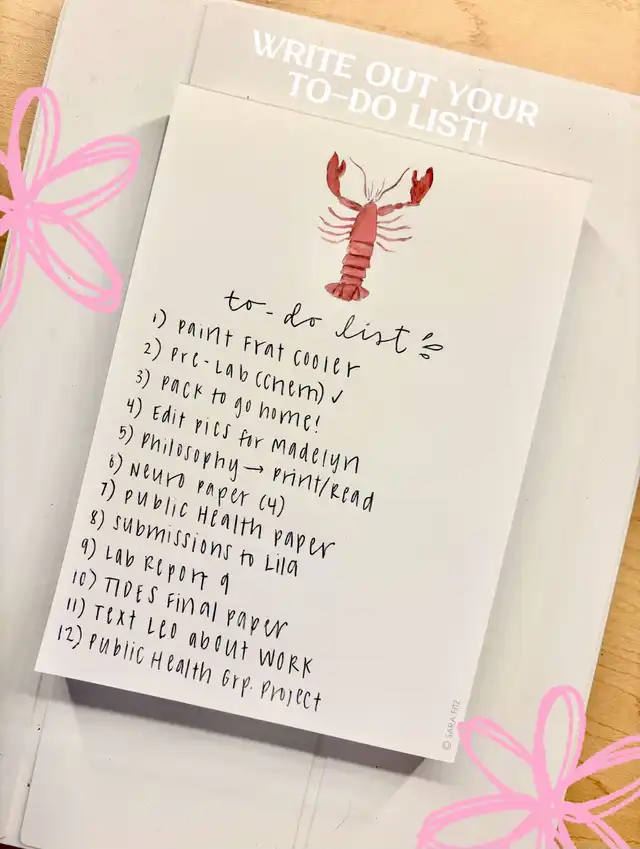 WRITE OUT YOUR
TO-DO LIST!
to-do list
1) Paint Frat Cooler
2) Pre-Lab (Chem) ✓
3) Pack to go home!
4) Edit pics for Madelyn
5) Philosophy → Print/Read
6) Neuro Paper (4)
7) Public Health paper
8) Submissions to Lila
9) Lab Report 9
10) TIDES Final Paper
11) Text Leo about work
12) Public Health Grp. Project
© SARA FITZ